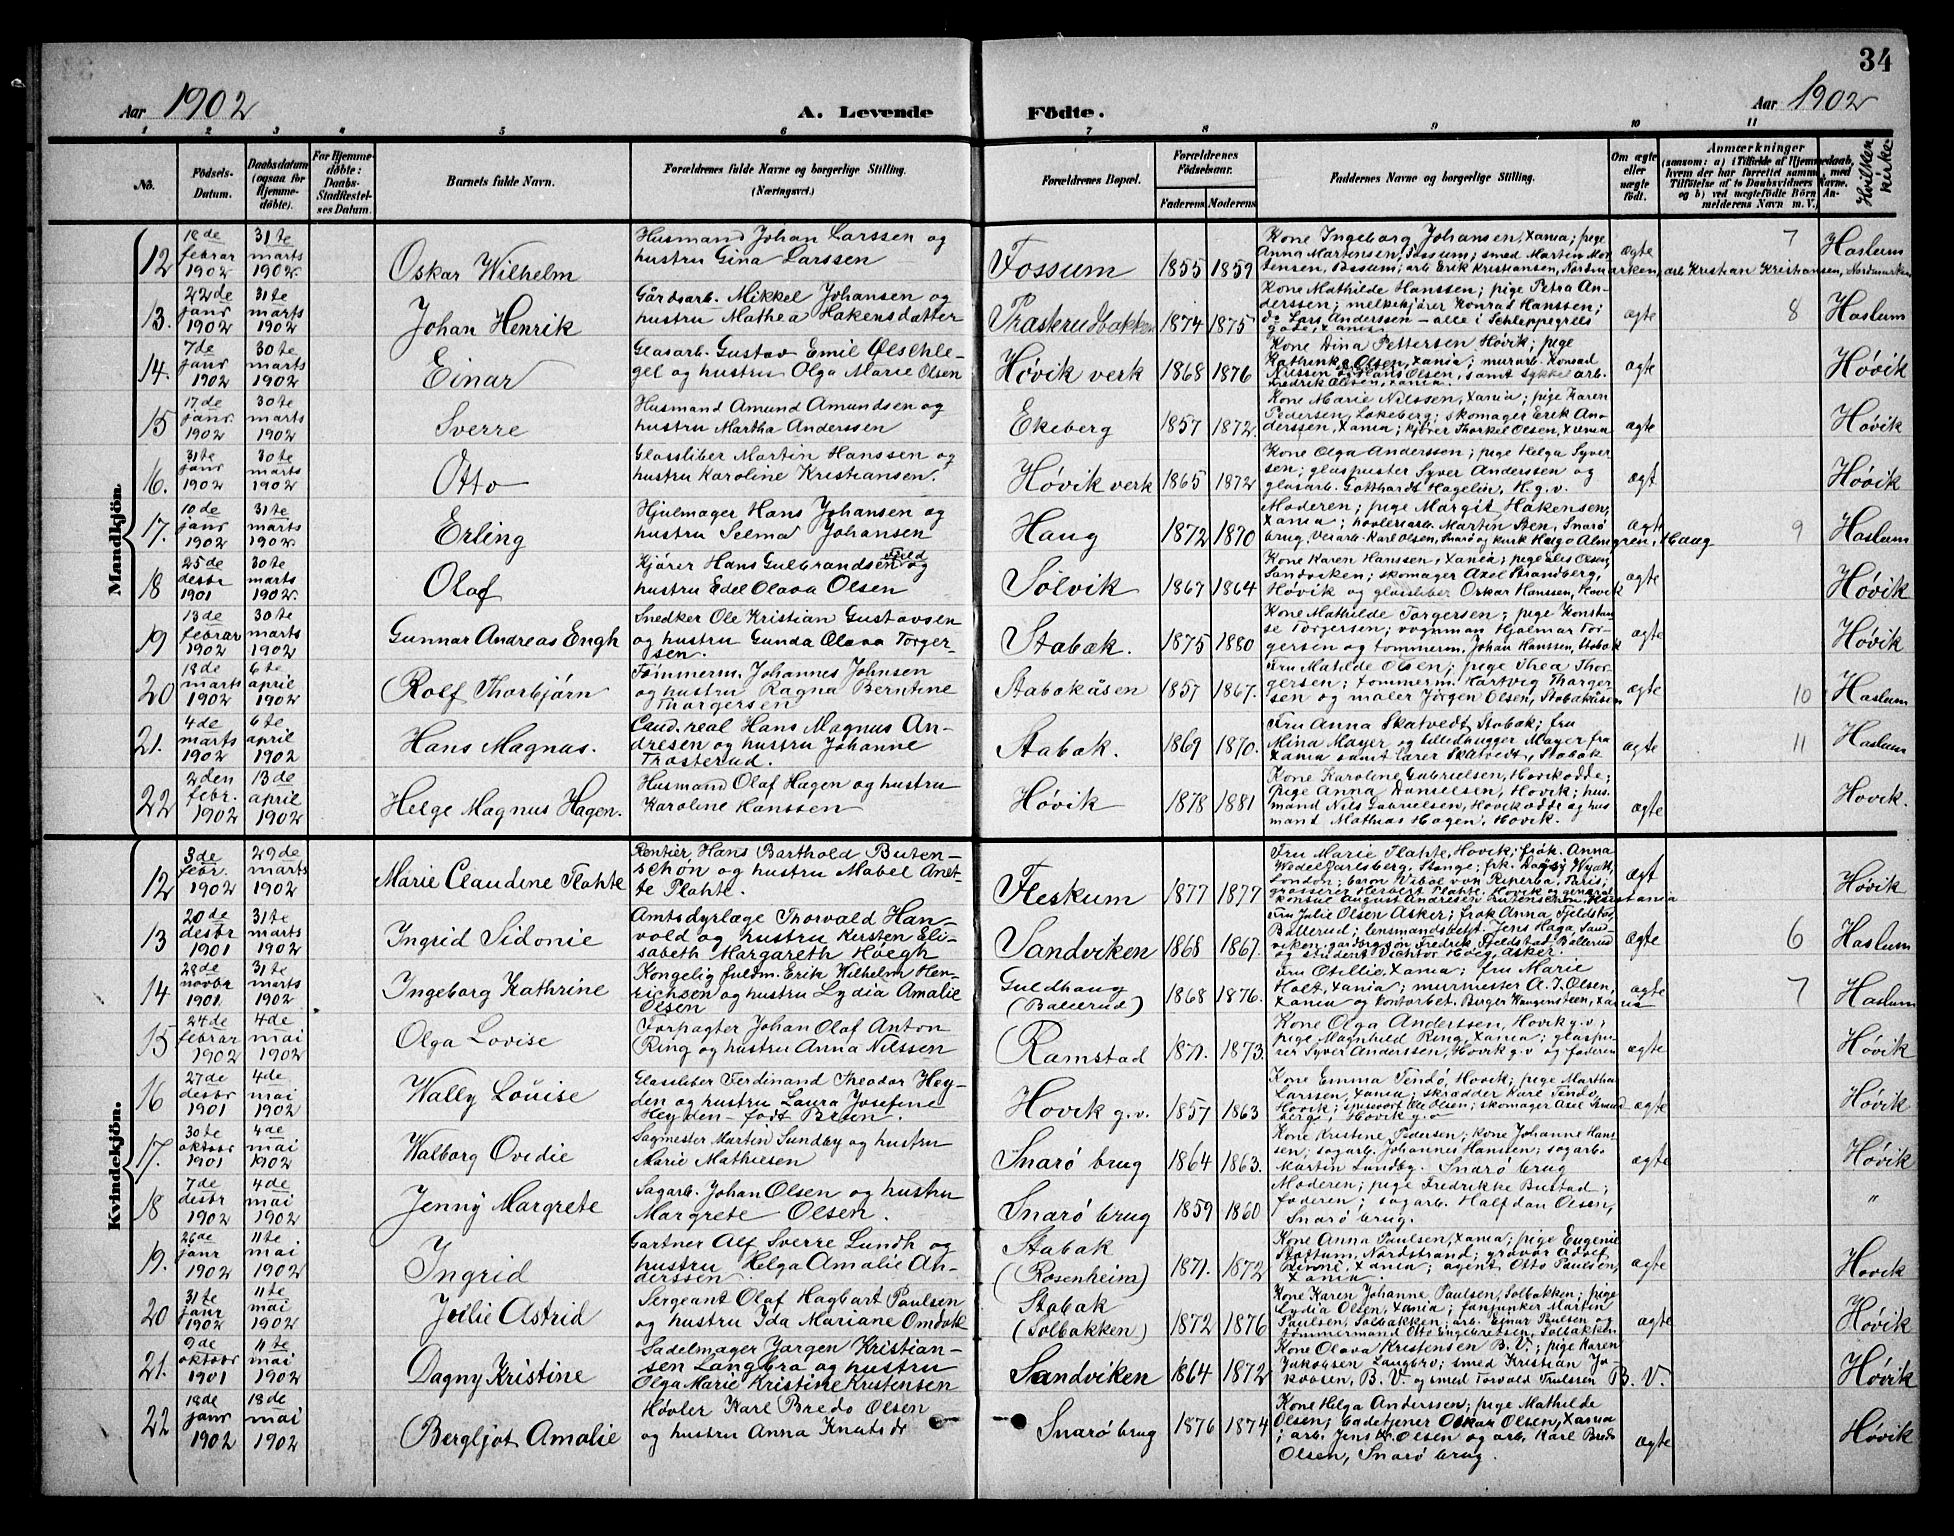 34
Aar 1902 A. Levende Födte. Aar 1902
1 2 3 4 5 6 7 8 9 10 11
No. Födsels-Datum. Daabsdatum (ogsaa for Hjemmedöbte). For Hjemmedöbte: Daabs-Stadfæstelses Datum. Barnets fulde Navn. Forældrenes fulde Navne og borgerlige Stilling. (Næringsvei.) Forældrenes Bopæl. Forældrenes Födselsaar. Faderens Moderens Faddernes Navne og borgerlige Stilling. Om ægte eller uægte födt. Anmærkninger Hvilken kirke
Mandkjön.
12 18de februar 1902 31te marts 1902 Oskar Wilhelm Husmand Johan Larssen og hustru Gina Larssen Fossum 1855 1859 Kone Ingeborg Johansen, Xania; pige Anna Martensen, Fossum; smed Martin Mortensen, Fossum; arb. Erik Kristiansen, Nordmarken, arb Kristian Kristiansen, Nordmarken ægte 7 Haslum
13. 22de janr 1902 31te marts 1902 Johan Henrik Gårdsarb. Mikkel Johansen og hustru Mathea Håkensdatter Præsterudbakken 1874 1875 Kone Mathilde Hanssen; pige Petra Anderssen; melkekjører Konrad Hanssen; do Lars Anderssen – alle i Schleppegrells gade, Xania ægte 8 Haslum
14. 7de janr 1902 30te marts 1902 Einar Glasarb. Gustav Emil Ølschlegel og hustru Olga Marie Olsen Høvik verk 1868 1876 Kone Dina Pettersen Høvik; pige Kathinka Olsen, Xania; murarb. Konrad Nilssen og Hans Olsen, samt sykkelarb. Fredrik Olsen, Xania. ægte Høvik
15 17de janr. 1902 30te marts 1902 Sverre Husmand Amund Amundsen og hustru Martha Anderssen Ekeberg 1857 1872. Kone Marie Nilssen, Xania; pige Karen Pedersen, Løkeberg; skomager Erik Anderssen, Xania; kjører Thorkel Olsen, Xania ægte Høvik
16. 31te janr 1902 30te marts 1902 Otto Glassliber Martin Hanssen og hustru Karoline Kristiansen. Høvik verk 1865 1872 Kone Olga Anderssen; pige Helga Syversen; glaspuster Syver Anderssen og glasarb. Gotthardt Hagelin, H. g. v. ægt Høvik
17. 10de janr 1902 31te marts 1902. Erling Hjulmager Hans Johansen og hustru Selma Johansen Haug 1872 1870 Moderen; pige Margit Håkensen, Xania; høvleriarb. Martin Sten, Snarø brug, Verarb. Karl Olsen, Snarø og kusk Helge Almgren, Haug ægte 9 Haslum
18 25de desbr 1901 30te marts 1902. Olaf Kjører Hans Gulbrandsen Fild og hustru Edel Olava Olsen Solvik 1867 1864 Kone Karen Hanssen, Xania; pige Elis Olsen, Sandviken; skomager Axel Strandberg, Høvik og glassliber Oskar Hanssen, Høvik ægte Høvik
19 13de februar 1902 30te marts 1902 Gunnar Andreas Engh Snedker Ole Kristian Gustavsen og hustru Gunda Olava Torgersen. Stabæk. 1875 1880 Kone Mathilde Torgersen; pige Konstanse Torgersen; vognmand Hjalmar Torgersen og tømmerm. Johan Hanssen, Stabæk ægte Høvik
20 18de marts 1902 6te april 1902 Rolf Thorbjørn Tømmerm. Johannes Johnsen og hustru Ragna Berntine Thorgersen Stabækåsen 1857 1867. Fru Matilde Olsen; pige Thea Thorgersen; tømmerm. Hartvig Thorgersen og maler Jörgen Olsen, Stabækåsen ægte 10 Haslum
21. 4de marts 1902 6te april 1902 Hans Magnus. Cand. real Hans Magnus Andresen og hustru Johanne Trosterud. Stabæk. 1869 1870. Fru Anna Skatvedt, Stabæk; fru Mina Mayer og billedhugger Mayer fra Xania samt lærer Skatvedt, Stabæk ægte 11 Haslum
22 2den febr. 1902 13de april 1902 Helge Magnus Hagen. Husmand Olaf Hagen og hustru Karoline Hanssen Høvik 1878 1881 Kone Karoline Gabrielsen, Høvikodde; pige Anna Danielsen, Høvik; husmand Nils Gabrielsen, Høvikodde og husmand Mathias Hagen, Høvik. ægte Høvik.
Kvindekjön.
12 3de febr. 1902 29de marts 1902 Marie Claudine Plahte Rentier Hans Barthold Butenschøn og hustru Mabel Anette Plahte. Fleskum 1877 1877 Fru Marie Plahte, Høvik; frøk. Anna Wedel Jarlsberg, Stange; frk. Wyatt, London; baron von Ripperda, Paris; grosserer Herbert Plahte, Høvik og generalkonsul August Andresen ægt Høvik
13 20de desbr 1901 31te marts 1902 Ingrid Sidonie Amtsdyrlæge Thorvald Hanvold og hustru Kersten Elisabeth Margareth Høegh Sandviken 1868 1867. Fru Julie Olsen Asker; frøk Anna Fjeldstad, Ballerud; lensmandsbetj. Jens Haga, Sandviken, gårdbr. søn Fredrik Fjeldstad, Ballerud og student Vichtor Høeg, Asker. ægte 6 Haslum
14 28de novbr 1901. 31te marts 1902 Ingeborg Kathrine Kongelig fuldm. Erik Wilhelm Henrichsen og hustru Lydia Amalie Olsen Guldhaug (Ballerud) 1868 1876. Fru Otillie, Xania; fru Marie Holt, Xania; murmester A. J. Olsen, Xania og kontorbet. Birger Haugensteen, Xania ægte 7 Haslum
15 24de februar 1902 4de mai 1902 Olga Lovise Forpagter Johan Olaf Anton Ring og hustru Anna Nilssen Ramstad 1871. 1873. Kone Olga Anderssen, Høvik g. v; pige Magnhild Ring, Xania; glaspuster Syver Anderssen, Høvik g. v og faderen ægte Høvik
16 27de desbr 1901 4de mai 1902 Wally Louise Glassliber Ferdinand Theodor Heyden og hustru Laura Josefine Heyden – født Breen Høvik g. v. 1857 1863 Kone Emma Tendø, Høvik; pige Martha Larssen, Xania; skrædder Karl Tendø, Høvik; Ole Olsen; skomager Axel Strandberg, Høvik g. v ægte Høvik
17. 30te oktobr 1901 4de mai 1902 Walborg Ovidie Sagmester Martin Sundby og hustru Marie Mathiesen Snarø brug 1864 1863. Kone Kristine Pedersen; kone Johanne Hanssen; sagarb. Johannes Hanssen; sagarb. Martin Lundby. Snarø brug ægte Høvik
18 7de desbr 1902 4de mai 1902 Jenny Margrete Sagarb. Johan Olsen og hustru Margrete Olsen. Snarø brug 1859 1860 Moderen; pige Fredrikke Bustad; faderen; sagarb. Halfdan Olsen, Snarø brug. "
19. 26de janr 1902 11te mai 1902 Ingrid Gartner Alf Sverre Lundh og hustru Helga Amalie Anderssen Stabæk (Rosenheim) 1871. 1872 Kone Anna Paulsen, Xania; pige Eugenie Skøttum, Nordstrand; gravør Adolf, Xania; agent Otto Paulsen, Xania. ægte Høvik
20 31te janr 1902 11te mai 1902 Julie Astrid Sergeant Olaf Hagbart Paulsen og hustru Ida Mariane Omdahl Stabæk (Solbakken) 1872 1876 Kone Karen Johanne Paulsen, Solbakken; pige Lydia Olsen, Xania; fanjunker Martin Paulsen, Solbakken; arb. Einar Paulsen og tømmermand Otto Engebretsen, Solbakken ægte Høvik
21. 9de oktobr 1901 11te mai 1902 Dagny Kristine Sadelmager Jørgen Kristiansen Langbra og hustru Olga Marie Kristine Kristensen Sandviken 1864 1872 Kone Olava Kristensen B. V.; pige Karen Jakobsen Langbro; smed Kristian Jakobsen, B. V. og smed Torvald Trulssen B. V. Høvik
22 18de janr 1902 18de mai 1902 Bergljot Amalie Høvler Karl Bredo Olsen og hustru Anna Knutsdr Snarø brug 1876 1874 Kone Helga Anderssen; pige Mathilde Olsen; Oskar Olsen, Xania; arb. Jens Olsen og arb. Karl Bredo Olsen, Snarø brug. ægte Høvik